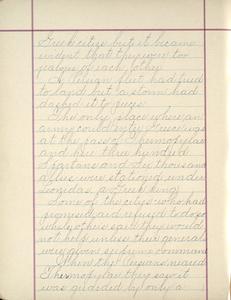 Greek citys but it became
evident that they were too
jealous of each other
A Persian fleet had tried
to land but a storm had
dashed it to pieces
The only place where an
army could enter Greece was
at the pass of Thermopylae
and here three hundred
Spartans and six thousand
allies were stationed under
Leonidas a Greek king
Some of the citys who had
promised aid refused to do so
while others said they would
not help unless their generals
were given supreme command
When the Persians neared
Thermopylae they saw it
was guarded by only a